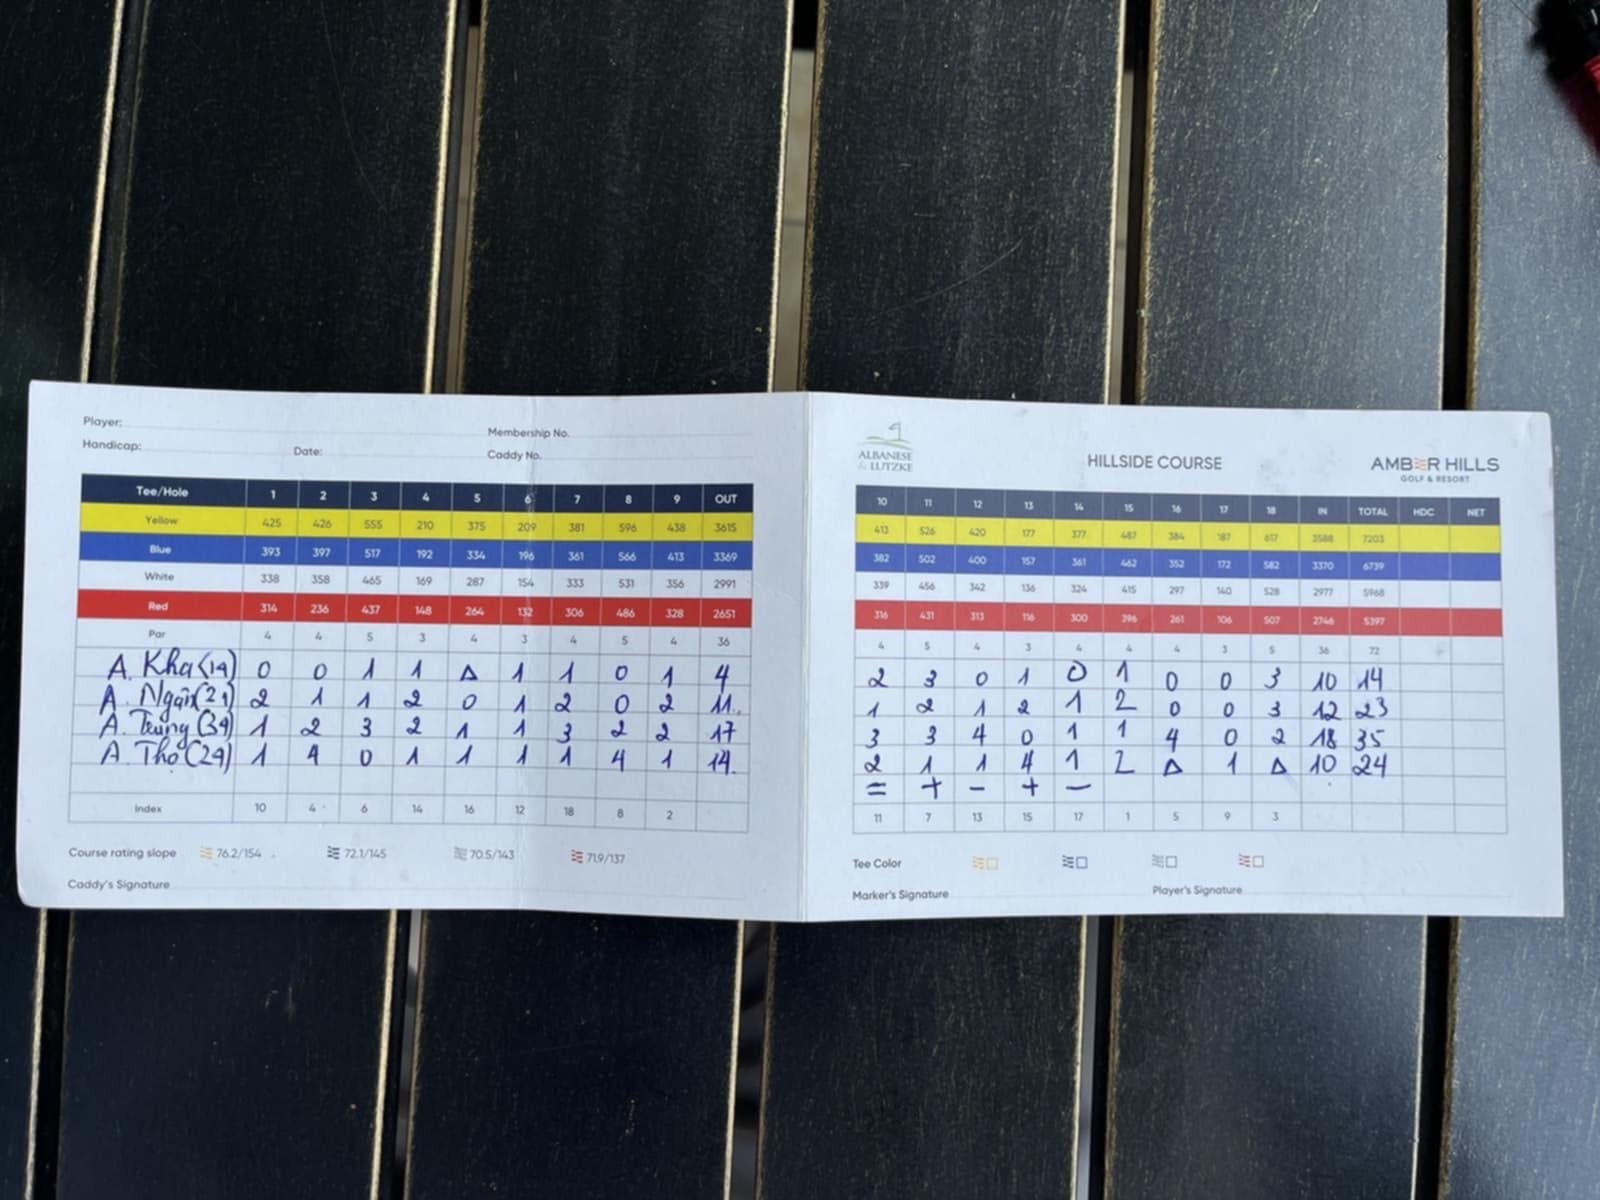 Player:
Membership No.
Handicap:
Date:
Caddy No.
Tee/Hole 1 2 3 4 5 6 7 8 9 OUT
Yellow 425 426 555 210 375 209 381 596 438 3615
Blue 393 397 517 192 334 196 361 566 413 3369
White 338 358 465 169 287 154 333 531 356 2991
Red 314 236 437 148 264 132 306 486 328 2651
Par 4 4 5 3 4 3 4 5 4 36
A. Kha (19) 0 0 1 1 Δ 1 1 0 1 4
A. Ngãi (29) 2 1 1 2 0 1 2 0 2 11.
A. Trung (39) 1 2 3 2 1 1 3 2 2 17
A. Thọ (29) 1 4 0 1 1 1 1 4 1 14.
Index 10 4 6 14 16 12 18 8 2
Course rating slope 76.2/154 72.1/145 70.5/143 71.9/137
Caddy's Signature
ALBANESE
& LUTZKE
HILLSIDE COURSE
AMBER HILLS
GOLF & RESORT
10 11 12 13 14 15 16 17 18 IN TOTAL HDC NET
413 526 420 177 377 487 384 187 617 3588 7203
382 502 400 157 361 462 352 172 582 3370 6739
339 456 342 136 324 415 297 140 528 2977 5968
316 431 313 116 300 396 261 106 507 2746 5397
4 5 4 3 4 4 4 3 5 36 72
2 3 0 1 0 1 0 0 3 10 14
1 2 1 2 1 2 0 0 3 12 23
3 3 4 0 1 1 4 0 2 18 35
2 1 1 4 1 2 Δ 1 Δ 10 24
= + - + -
11 7 13 15 17 1 5 9 3
Tee Color
Marker's Signature
Player's Signature